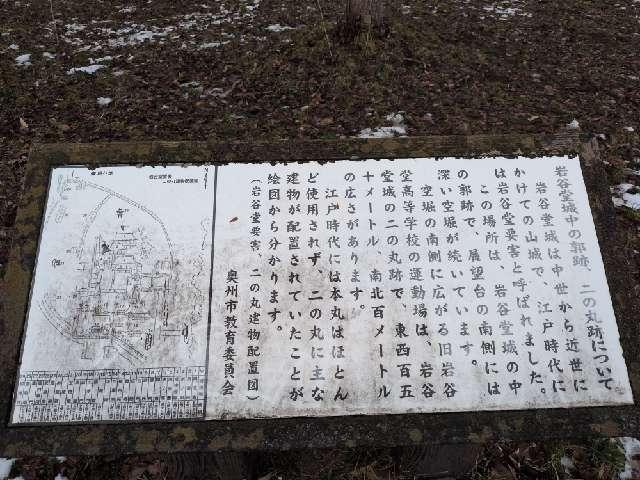 岩谷堂城中の郭跡、二の丸跡について
岩谷堂城は中世から近世に
かけての山城で、江戸時代に
は岩谷堂要害と呼ばれました。
この場所は、岩谷堂城の中
の郭跡で、展望台の南側には
深い空堀が続いています。
空堀の南側に広がる旧岩谷
堂高等学校の運動場は、岩谷
堂城の二の丸跡で、東西百五
十メートル、南北百メートル
の広さがあります。
江戸時代には本丸はほとん
ど使用されず、二の丸に主な
建物が配置されていたことが
絵図から分かります。
(岩谷堂要害、二の丸建物配置図)
奥州市教育委員会